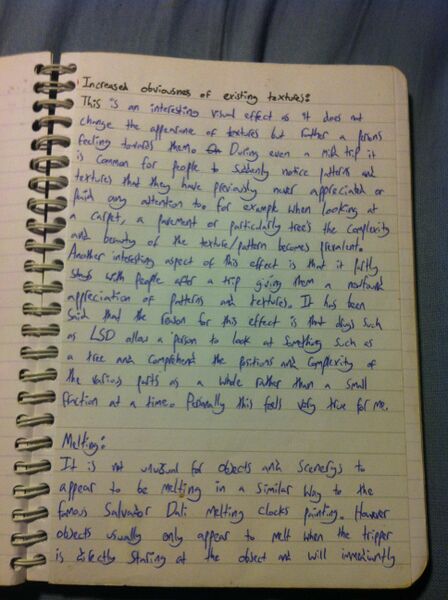 Increased obviousness of existing textures:
This is an interesting visual effect as it does not
change the appearance of textures but rather a persons
feeling towards them. During even a mild trip it
is common for people to suddenly notice patterns and
textures that they have previously never appreciated or
paid any attention too for example when looking at
a carpet, a pavement or particularly tree's the complexity
and beauty of the texture/pattern becomes prevalent.
Another interesting aspect of this effect is that it partly
stays with people after a trip giving them a newfound
appreciation of patterns and textures. It has been
said that the reason for this effect is that drugs such
as LSD allow a person to look at something such as
a tree and comprehend the positions and complexity of
the various parts as a whole rather than a small
fraction at a time. Personally this feels very true for me.
Melting:
It is not unusual for objects and scenerys to
appear to be melting in a similar way to the
famous Salvador Dali melting clocks painting. However
objects usually only appear to melt when the tripper
is directly staring at the object and will